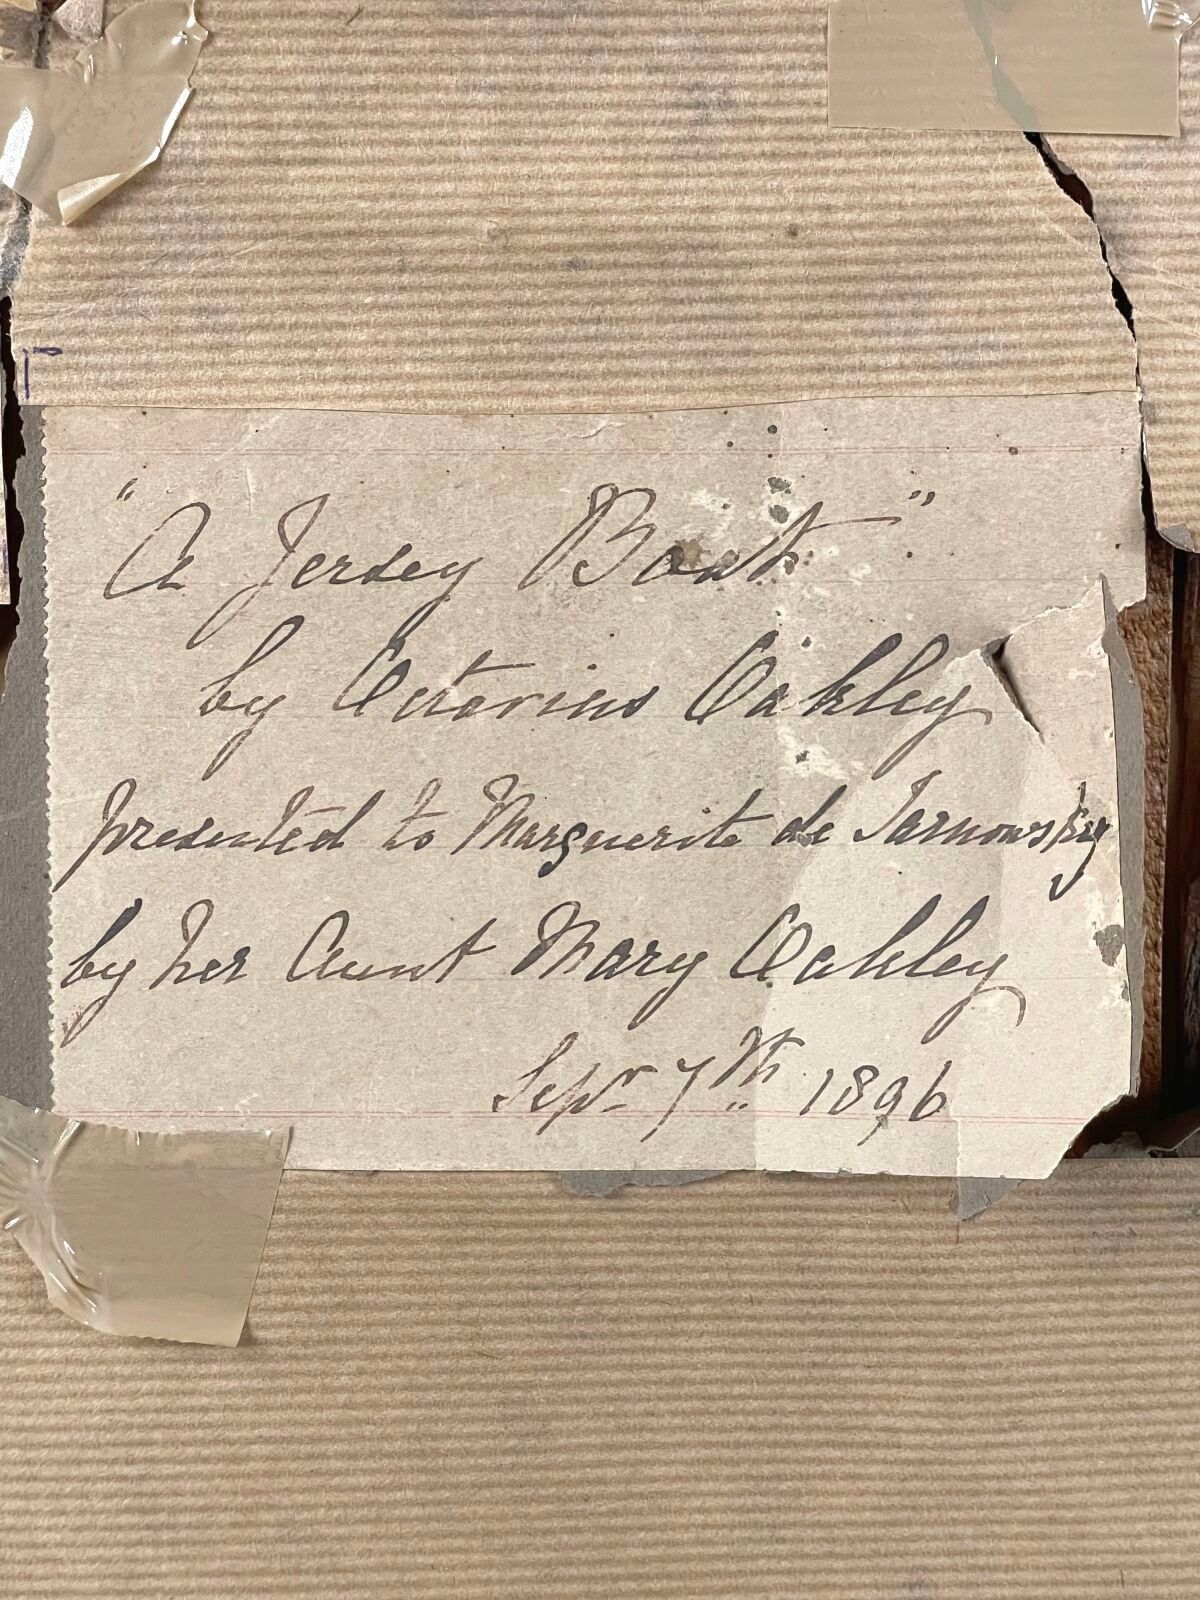 "A Jersey Boat"
by Octavius Oakley
presented to Marguerite de Tarnowsky
by her Aunt Mary Oakley
Sepr 7th 1896